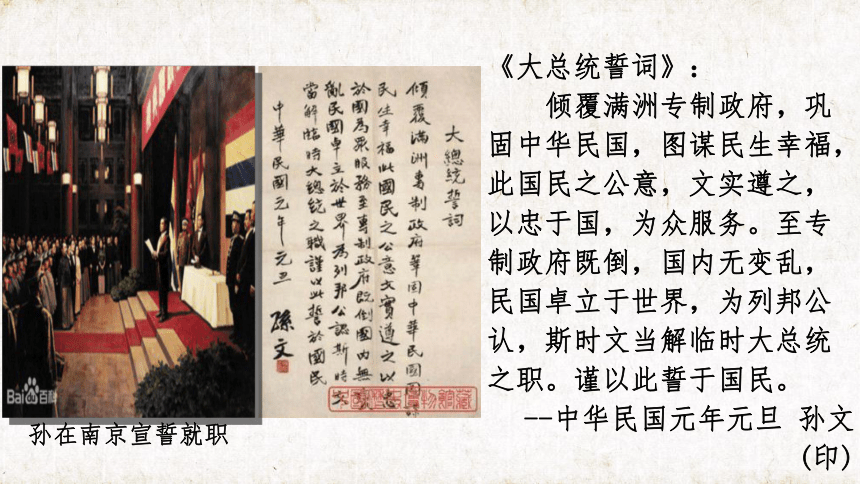 《大总统誓词》:
倾覆满洲专制政府，巩
固中华民国，图谋民生幸福，
此国民之公意，文实遵之，
以忠于国，为众服务。至专
制政府既倒，国内无变乱，
民国卓立于世界，为列邦公
认，斯时文当解临时大总统
之职。谨以此誓于国民。
--中华民国元年元旦 孙文
(印)
大總統誓詞
傾覆滿洲專制政府鞏固中華民國圖謀
民生幸福此國民之公意文實遵之以忠
於國為眾服務至專制政府既倒國內無
亂民國卓立於世界為列邦公認斯時文
當解臨時大總統之職謹以此誓於國民
中華民國元年元旦
孫文
Bai百科
孙在南京宣誓就职